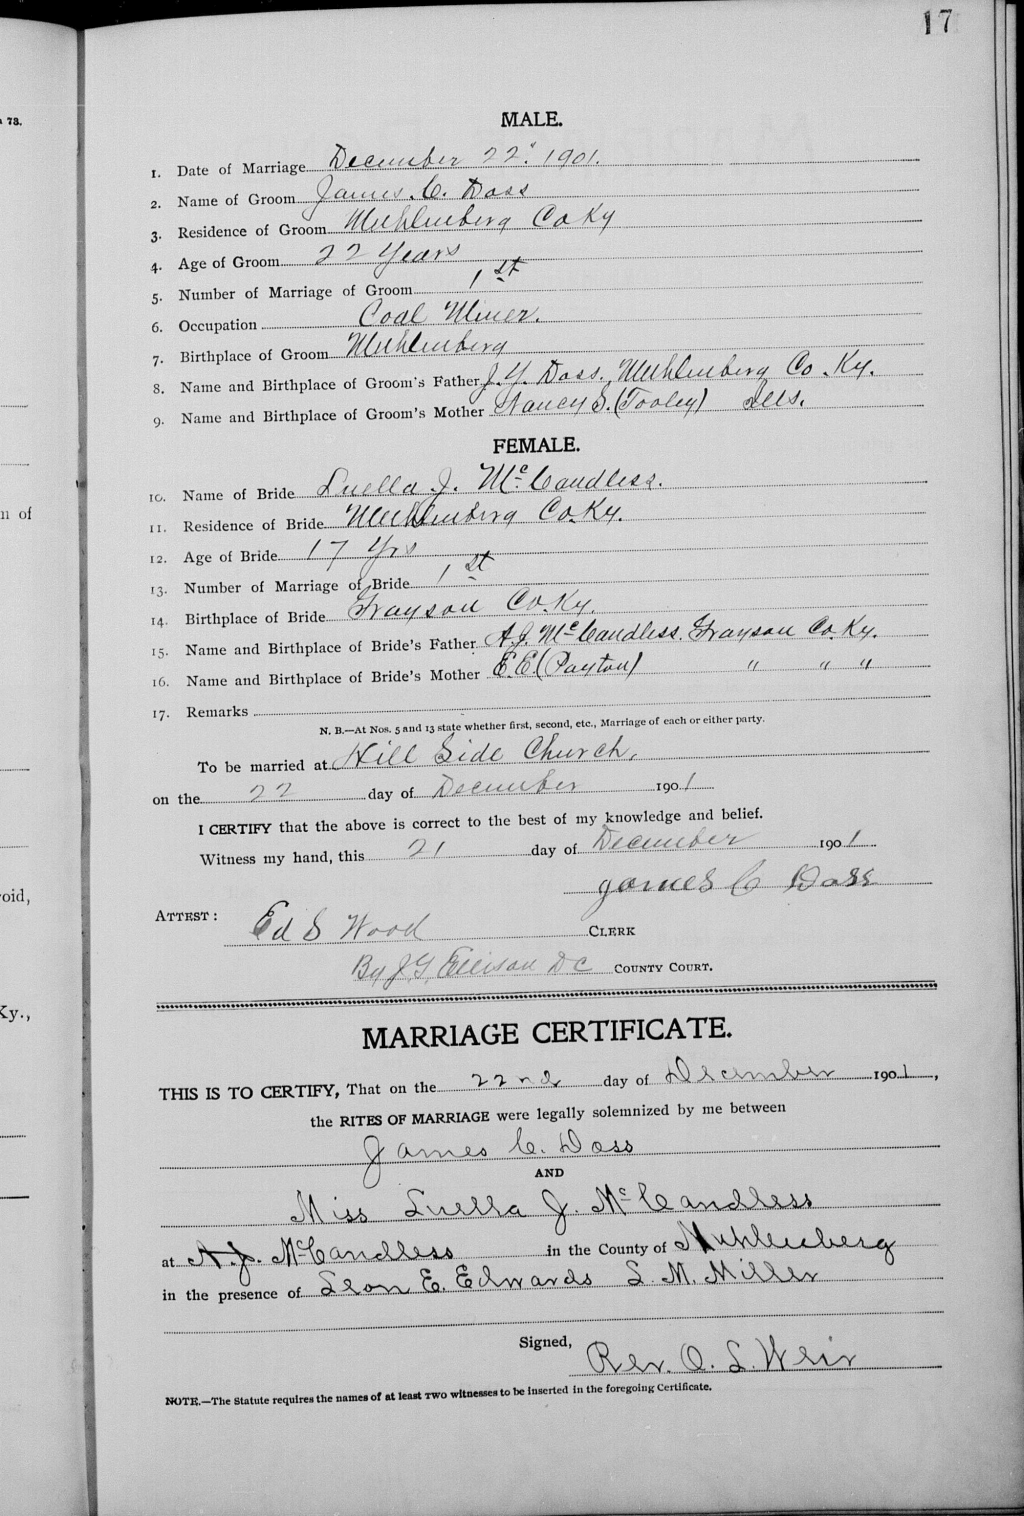 17
73.
MALE.
1. Date of Marriage December 22" 1901.
2. Name of Groom James. C. Doss
3. Residence of Groom Muhlenberg Co Ky
4. Age of Groom 22 Years
5. Number of Marriage of Groom 1st
6. Occupation Coal Miner.
7. Birthplace of Groom Muhlenberg
8. Name and Birthplace of Groom's Father J. Y. Doss. Muhlenberg Co. Ky.
9. Name and Birthplace of Groom's Mother Nancy S. (Tooley) Ills.
FEMALE.
10. Name of Bride Luella J. McCandless.
11. Residence of Bride Muhlenberg Co. Ky.
n of
12. Age of Bride 17 Yrs
13. Number of Marriage of Bride 1st
14. Birthplace of Bride Grayson Co. Ky.
15. Name and Birthplace of Bride's Father A. J. McCandless. Grayson Co. Ky.
16. Name and Birthplace of Bride's Mother E. E. (Payton) " " "
17. Remarks
N. B.—At Nos. 5 and 13 state whether first, second, etc., Marriage of each or either party.
To be married at Hill Side Church,
on the 22 day of December 1901
I CERTIFY that the above is correct to the best of my knowledge and belief.
Witness my hand, this 21 day of December 1901
James C Doss
oid,
ATTEST: Ed S Wood CLERK
By J. G. Ellison DC COUNTY COURT.
Ky.,
MARRIAGE CERTIFICATE.
THIS IS TO CERTIFY, That on the 22nd day of December 1901,
the RITES OF MARRIAGE were legally solemnized by me between
James C. Doss
AND
Miss Luella J. McCandless
at A. J. McCandless in the County of Muhlenberg
in the presence of Leon E. Edwards L. M. Miller
Signed, Rev. O. L. Weir
NOTE.—The Statute requires the names of at least TWO witnesses to be inserted in the foregoing Certificate.